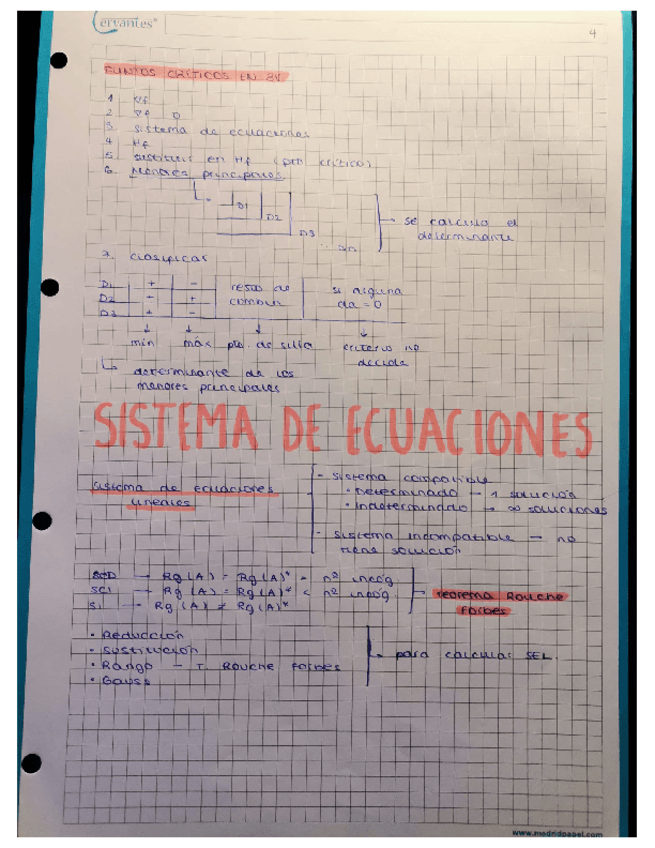 Cervantes®
4
PUNTOS CRÍTICOS EN 3V
1 ∇f
2 ∇f 0
3 sistema de ecuaciones
4 Hf
5 sustituir en Hf (pto crítico)
6 Menores principales
D1
D2
D3
se calcula el
determinante
7. clasificar
D1 + - resto de si alguna
D2 + + combin da = 0
D3 + -
min máx pto. de silla criterio no
decide
↳ determinante de los
menores principales
SISTEMA DE ECUACIONES
sistema de ecuaciones
lineales
- sistema compatible
• Determinado → 1 solución
• Indeterminado → ∞ soluciones
- sistema incompatible → no
tiene solución
SCD → Rg(A) = Rg(A)* = nº incóg
SCI → Rg(A) = Rg(A)* < nº incóg.
SI → Rg(A) ≠ Rg(A)*
teorema Rouche
Forbes
• Reducción
• Sustitución
• Rango - T. Rouche Forbes
• Gauss
para calcular SEL.
www.madridpapel.com